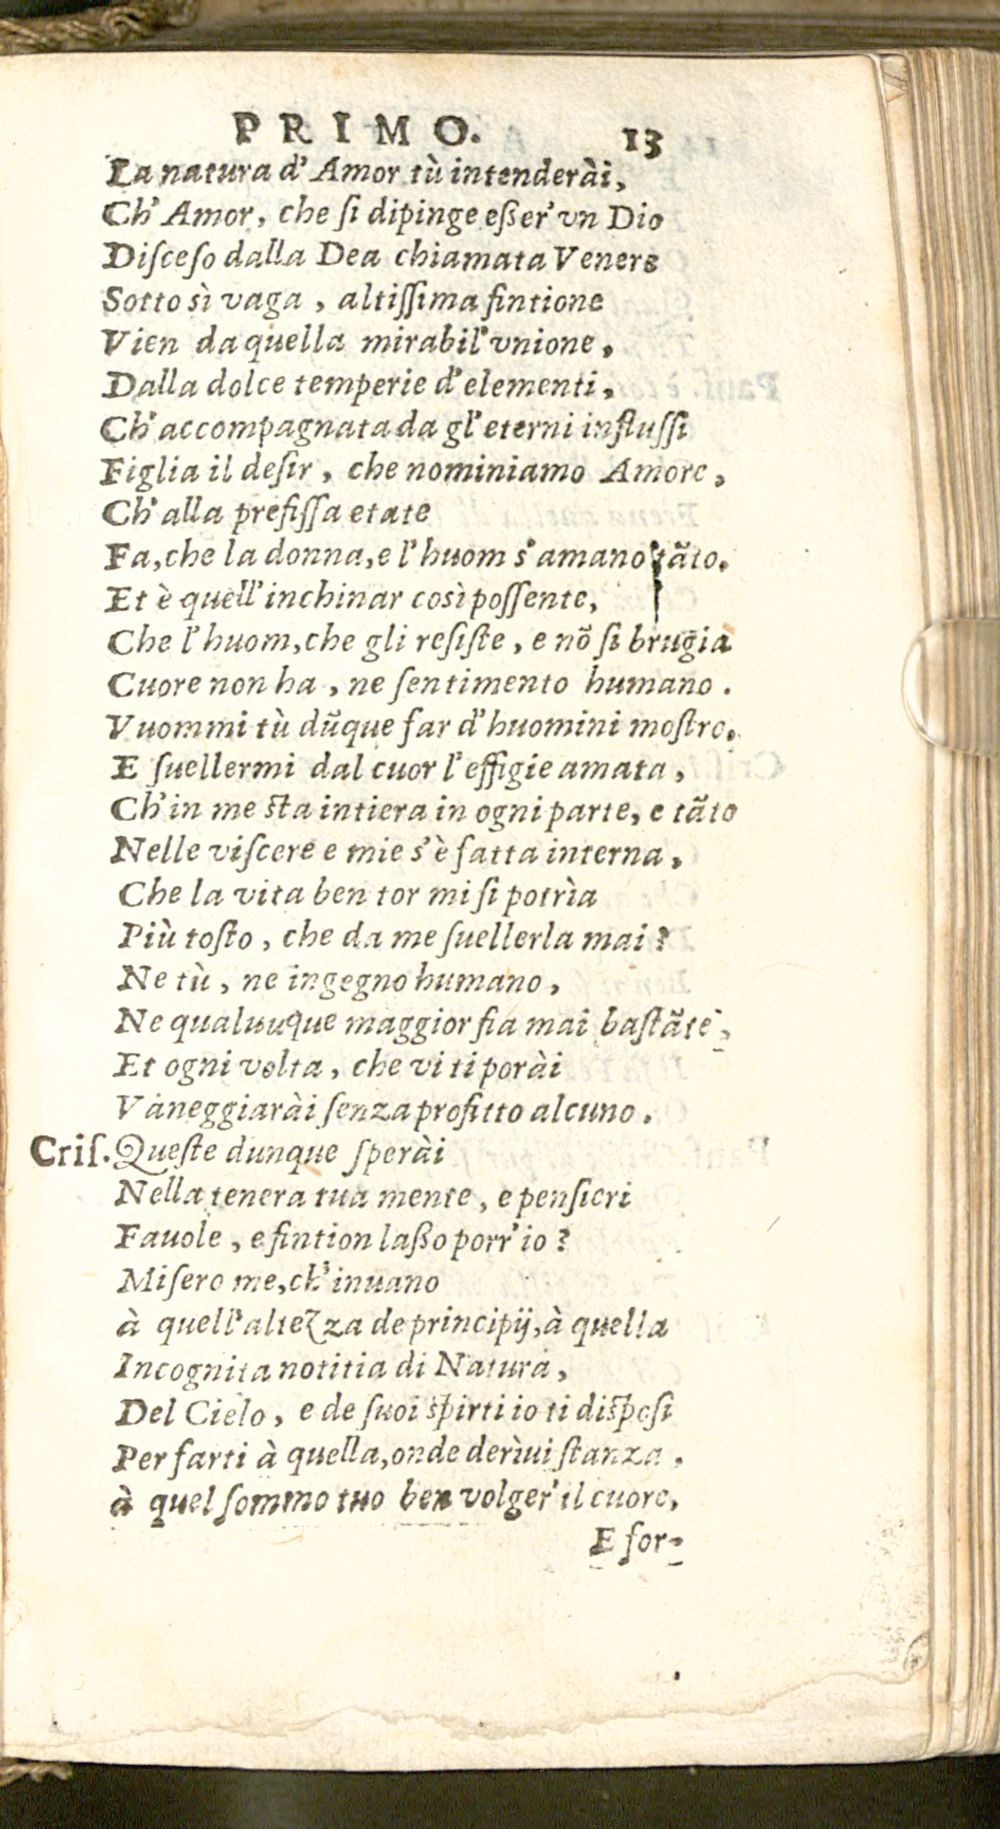 PRIMO. 13
La natura d'Amor tù intenderài,
Ch'Amor, che ſi dipinge eßer'vn Dio
Diſceſo dalla Dea chiamata Venere
Sotto sì vaga, altiſſima fintione
Vien da quella mirabil'vnione,
Dalla dolce temperie d'elementi,
Ch'accompagnata da gl'eterni influſſi
Figlia il deſir, che nominiamo Amore,
Ch'alla prefiſſa etate
Fa, che la donna, e l'huom s'amano tãto.
Et è quell'inchinar così poſſente,
Che l'huom, che gli reſiſte, e nõ ſi brugia
Cuore non ha, ne ſentimento humano.
Vuommi tù dũque far d'huomini moſtro,
E ſuellermi dal cuor l'effigie amata,
Ch'in me sta intiera in ogni parte, e tãto
Nelle viſcere e mie s'è fatta interna,
Che la vita ben tor mi ſi potrìa
Più toſto, che da me ſuellerla mai?
Ne tù, ne ingegno humano,
Ne qualuuque maggior fia mai baſtãte,
Et ogni volta, che vi ti porài
Vaneggiarài ſenza profitto alcuno.
Criſ. Queſte dunque ſperài
Nella tenera tua mente, e penſieri
Fauole, e fintion laßo porr'io?
Miſero me, ch'inuano
à quell'altezza de principij, à quella
Incognita notitia di Natura,
Del Cielo, e de ſuoi spirti io ti dispoſi
Per farti à quella, onde derìui ſtanza,
à quel ſommo tuo ben volger'il cuore,
E for-